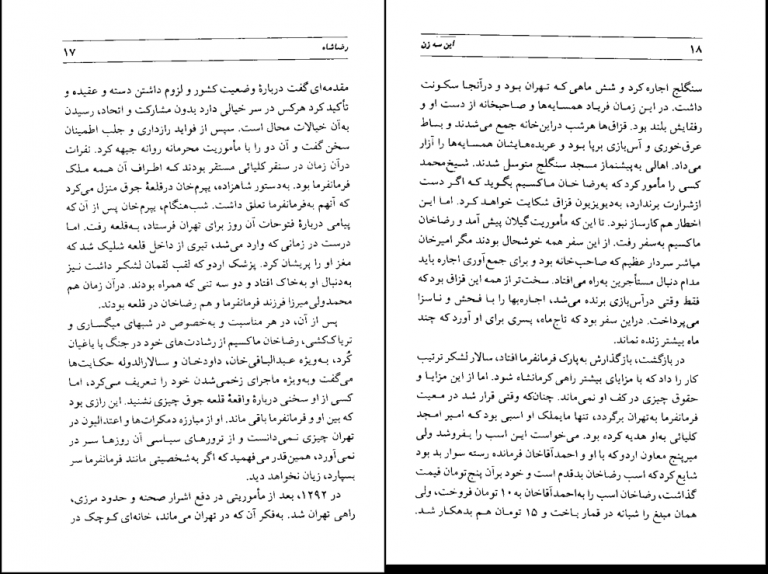 رضاشاه ۱۷
مقدمه‌ای گفت دربارهٔ وضعیت کشور و لزوم داشتن دسته و عقیده و
تأکید کرد هرکس در سر خیالی دارد بدون مشارکت و اتحاد، رسیدن
به‌آن خیالات محال است. سپس از فواید رازداری و جلب اطمینان
سخن گفت و آن دو را با مأموریت محرمانه روانه جبهه کرد. نفرات
درآن زمان در سنقر کلیائی مستقر بودند که اطراف آن همه ملک
فرمانفرما بود. به‌دستور شاهزاده، یپرم‌خان درقلعهٔ جوق منزل می‌کرد
که آنهم به‌فرمانفرما تعلق داشت. شب‌هنگام، یپرم‌خان پس از آن که
پیامی دربارهٔ فتوحات آن روز برای تهران فرستاد، به‌قلعه رفت. اما
درست در زمانی که وارد می‌شد، تیری از داخل قلعه شلیک شد که
مغز او را پریشان کرد. پزشک اردو که لقب لقمان لشکر داشت نیز
به‌دنبال او به‌خاک افتاد و دو سه تنی که همراه بودند. درآن زمان هم
محمدولی‌میرزا فرزند فرمانفرما و هم رضاخان در قلعه بودند.
پس از آن، در هر مناسبت و به‌خصوص در شبهای میگساری و
تریاک‌کشی، رضاخان ماکسیم از رشادت‌های خود در جنگ با یاغیان
کُرد، به‌ویژه عبدالباقی‌خان، داودخان و سالارالدوله حکایت‌ها
می‌گفت وبه‌ویژه ماجرای زخمی‌شدن خود را تعریف می‌کرد، اما
کسی از او سخنی دربارهٔ واقعهٔ قلعه جوق چیزی نشنید. این رازی بود
که بین او و فرمانفرما باقی ماند. او از مبارزه دمکرات‌ها و اعتدالیون در
تهران چیزی نمی‌دانست و از ترورهای سیاسی آن روزها سر در
نمی‌آورد، همین‌قدر می‌فهمید که اگر به‌شخصیتی مانند فرمانفرما سر
بسپارد، زیان نخواهد دید.
در ۱۲۹۲، بعد از مأموریتی در دفع اشرار صحنه و حدود مرزی،
راهی تهران شد. به‌فکر آن که در تهران می‌ماند، خانه‌ای کوچک در
این سه زن ۱۸
سنگلج اجاره کرد و شش ماهی که تهران بود و درآنجا سکونت
داشت. در این زمان فریاد همسایه‌ها و صاحبخانه از دست او و
رفقایش بلند بود. قزاق‌ها هرشب دراین‌خانه جمع می‌شدند و بساط
عرق‌خوری و آس‌بازی برپا بود و عربده‌هایشان همسایه‌ها را آزار
می‌داد. اهالی به‌پیشنماز مسجد سنگلج متوسل شدند. شیخ‌محمد
کسی را مأمور کرد که به‌رضا خان ماکسیم بگوید که اگر دست
ازشرارت برندارد، به‌دیویزیون قزاق شکایت خواهد کرد. اما این
اخطار هم کارساز نبود. تا این که مأموریت گیلان پیش آمد و رضاخان
ماکسیم به‌سفر رفت. از این سفر همه خوشحال بودند مگر امیرخان
مباشر سردار عظیم که صاحب‌خانه بود و برای جمع‌آوری اجاره باید
مدام دنبال مستأجرین به‌راه می‌افتاد. سخت‌تر از همه این قزاق بود که
فقط وقتی درآس‌بازی برنده می‌شد، اجاره‌بها را با فحش و ناسزا
می‌پرداخت. دراین سفر بود که تاج‌ماه، پسری برای او آورد که چند
ماه بیشتر زنده نماند.
در بازگشت، بازگذارش به‌پارک فرمانفرما افتاد، سالار لشکر ترتیب
کار را داد که با مزایای بیشتر راهی کرمانشاه شود. اما از این مزایا و
حقوق چیزی در کف او نمی‌ماند. چنان‌که وقتی قرار شد در معیت
فرمانفرما به‌تهران برگردد، تنها مایملک او اسبی بود که امیر امجد
کلیائی به‌او هدیه کرده بود. می‌خواست این اسب را بفروشد ولی
میرپنج معاون اردو که با او و احمدآقاخان فرمانده رسته سوار بد بود
شایع کرد که اسب رضاخان بدقدم است و خود برآن پنج‌تومان قیمت
گذاشت، رضاخان اسب را به‌احمدآقاخان به ۱۰ تومان فروخت، ولی
همان مبلغ را شبانه در قمار باخت و ۱۵ تومان هم بدهکار شد.